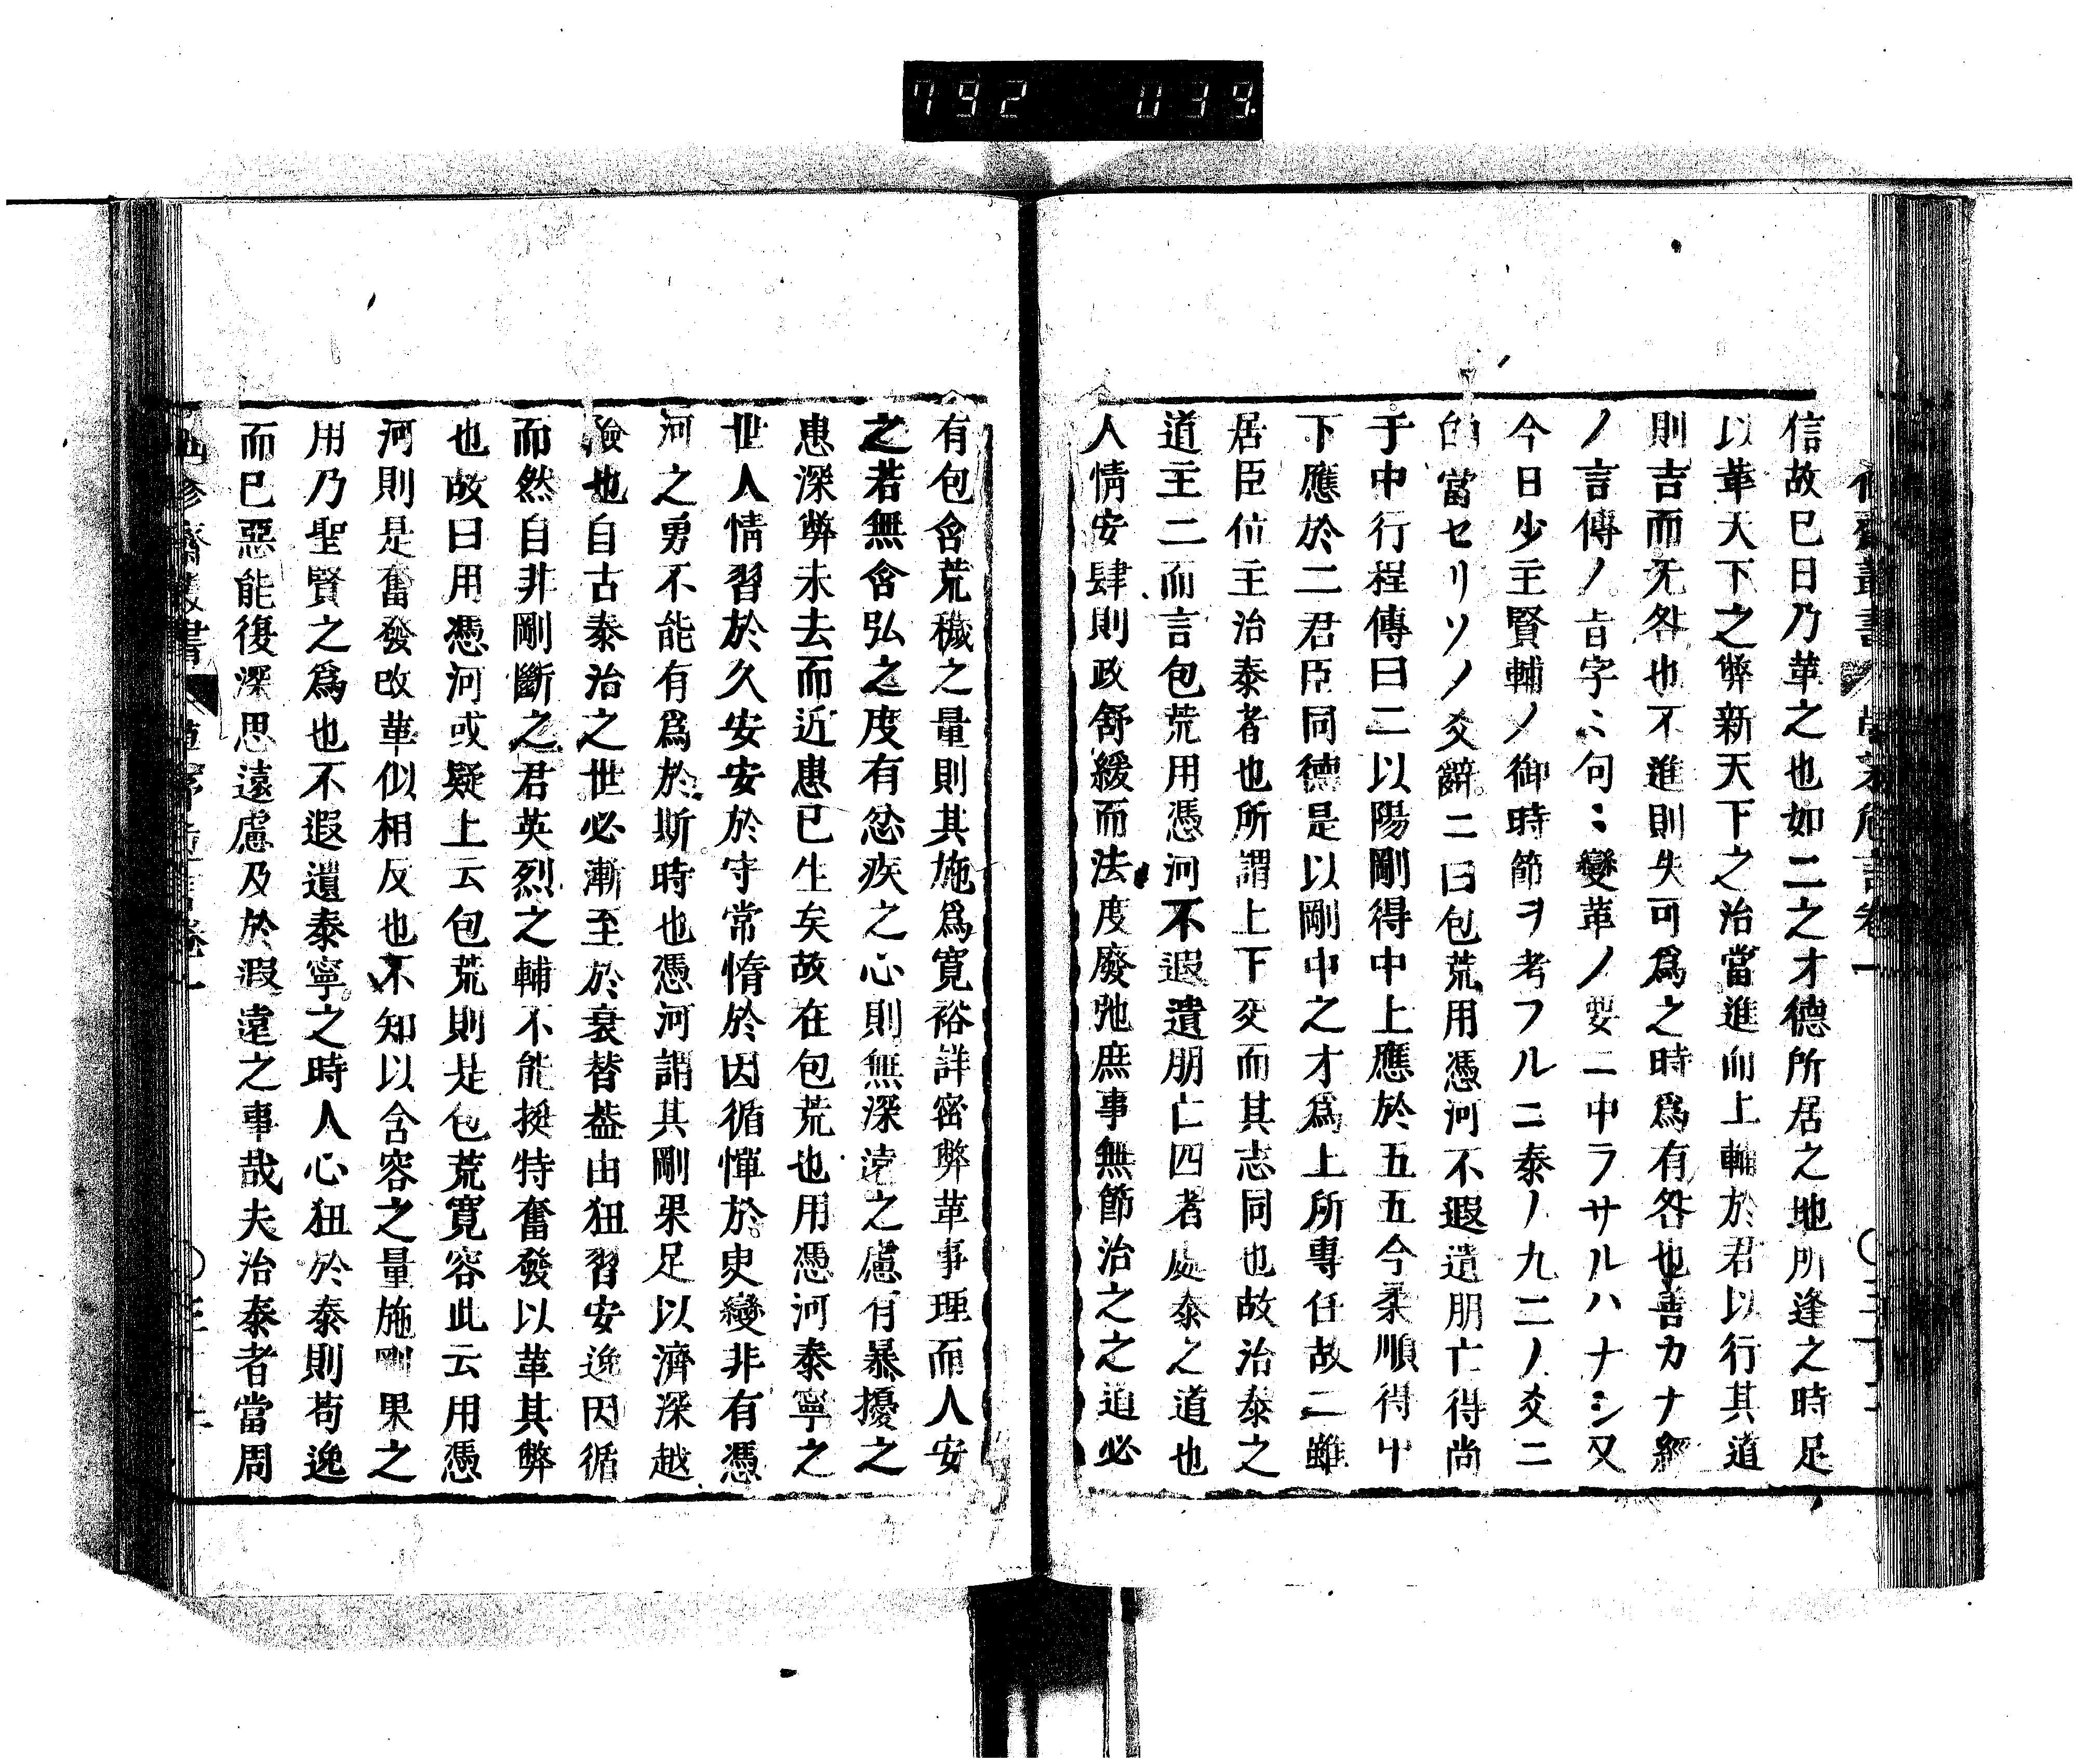 792 039
信故已日乃革之也如二之才德所居之地所逢之時足
以革天下之弊新天下之治當進而上輔於君以行其道
則吉而无咎也不進則失可爲之時爲有咎也善カナ經
ノ言傳ノ旨字〻句〻變革ノ要ニ中ラサルハナシ又
今日少主賢輔ノ御時節ヲ考フルニ泰ノ九二ノ爻ニ
的當セリソノ爻辭ニ曰包荒用憑河不遐遺朋亡得尚
于中行程傳曰二以陽剛得中上應於五五今柔順得中
下應於二君臣同德是以剛中之才爲上所專任故二雖
居臣位主治泰者也所謂上下交而其志同也故治泰之
道主二而言包荒用憑河不遐遺朋亡四者處泰之道也
人情安肆則政舒緩而法度廢弛庶事無節治之之道必
有包含荒穢之量則其施爲寛裕詳密弊革事理而人安
之若無含弘之度有忿疾之心則無深遠之慮有暴擾之
患深弊未去而近患已生矣故在包荒也用憑河泰寧之
世人情習於久安安於守常惰於因循憚於吏變非有憑
河之勇不能有爲於斯時也憑河謂其剛果足以濟深越
險也自古泰治之世必漸至於衰替葢由狃習安逸因循
而然自非剛斷之君英烈之輔不能挺特奮發以革其弊
也故曰用憑河或疑上云包荒則是包荒寛容此云用憑
河則是奮發改革似相反也不知以含容之量施剛果之
用乃聖賢之爲也不遐遺泰寧之時人心狃於泰則苟逸
而已惡能復深思遠慮及於遐遠之事哉夫治泰者當周